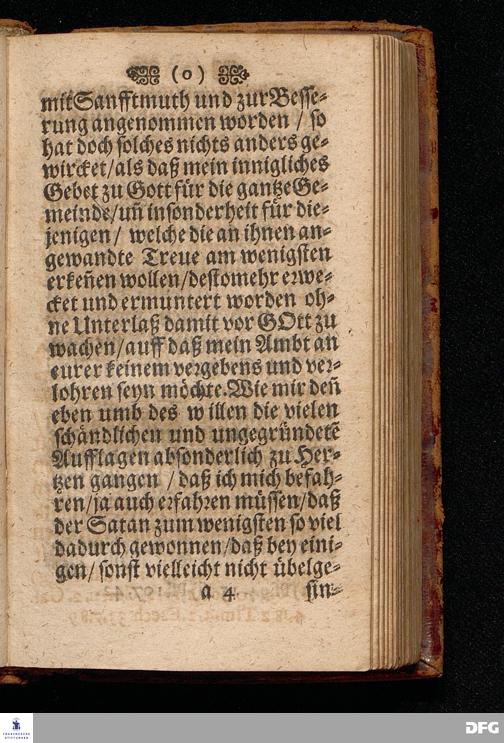 (0)
mit Sanfftmuth und zur Besse-
rung angenommen worden / so
hat doch solches nichts anders ge-
wircket / als daß mein innigliches
Gebet zu Gott für die gantze Ge-
meinde / uñ insonderheit für die-
jenigen / welche die an ihnen an-
gewandte Treue am wenigsten
erkeñen wollen / destomehr erwe-
cket und ermuntert worden oh-
ne Unterlaß damit vor GOtt zu
wachen / auff daß mein Ambt an
eurer keinem vergebens und ver-
lohren seyn möchte. Wie mir deñ
eben umb des willen die vielen
schändlichen und ungegründetẽ
Aufflagen absonderlich zu Her-
tzen gangen / daß ich mich befah-
ren / ja auch erfahren müssen / daß
der Satan zum wenigsten so viel
dadurch gewonnen / daß bey eini-
gen / sonst vielleicht nicht übelge-
a 4 sin-
FRANCKESCHE
STIFTUNGEN
DFG